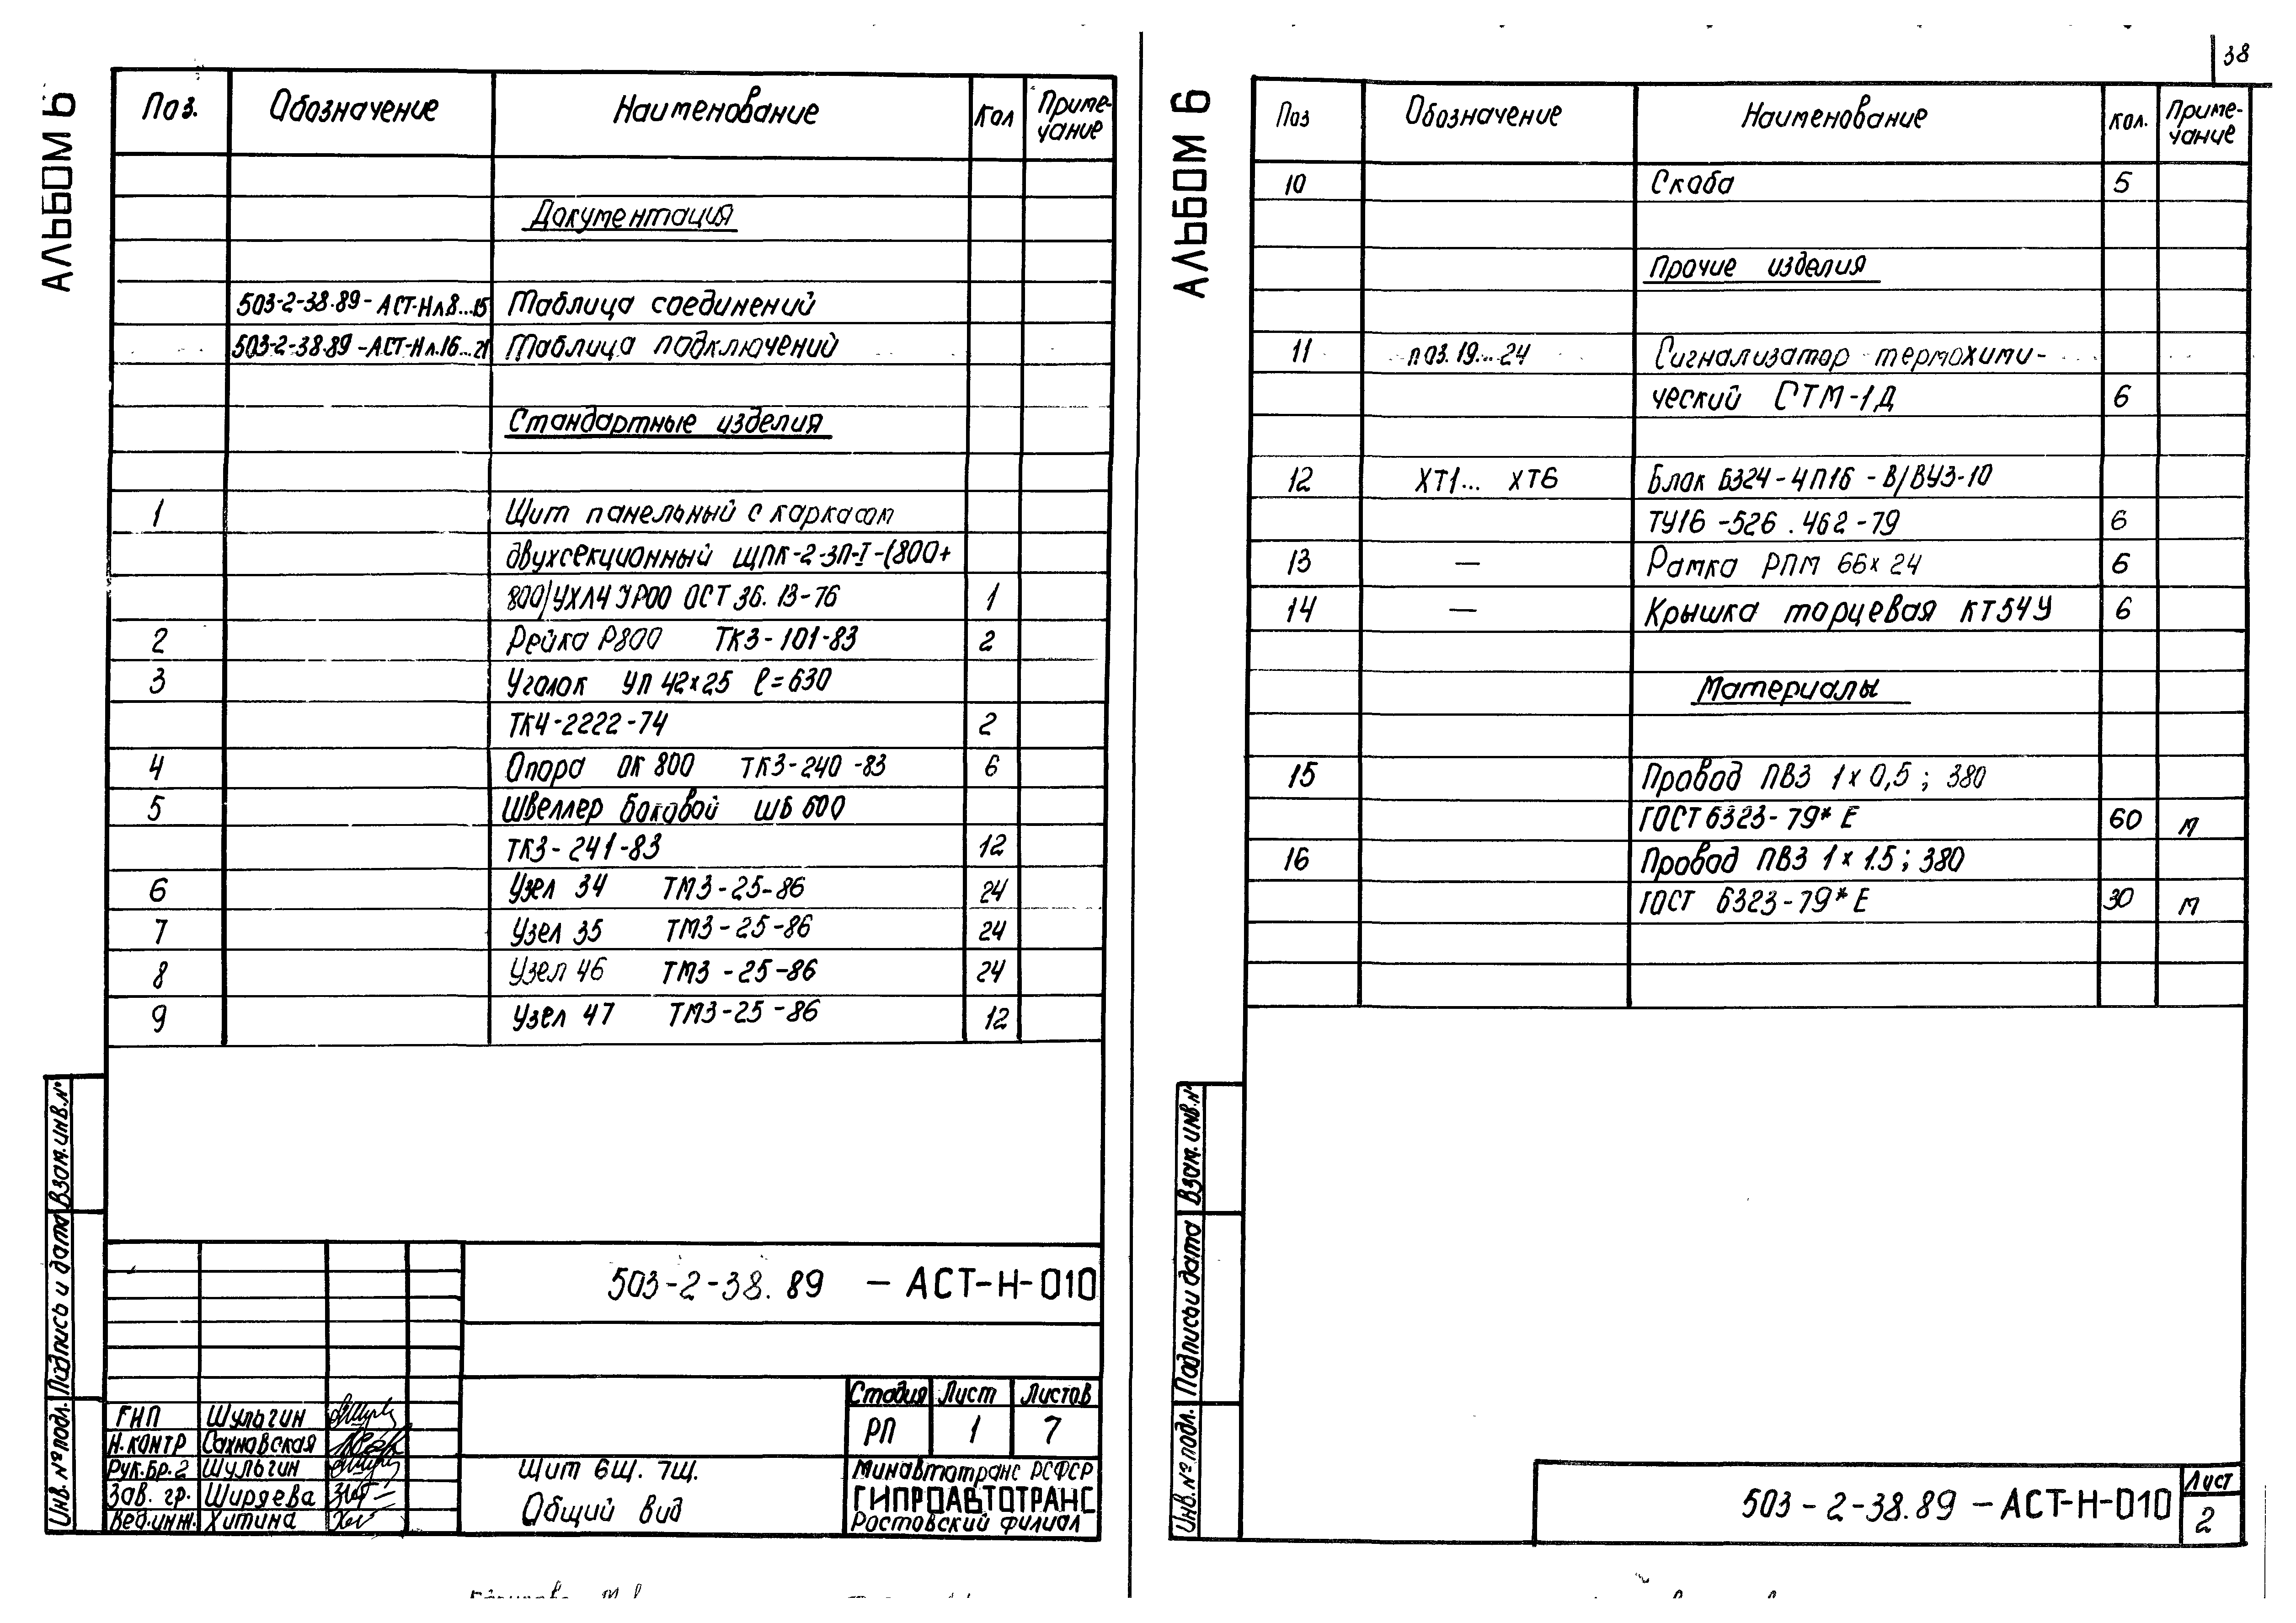 АЛЬБОМ 6
Поз. Обозначение Наименование Кол Приме-
чание
Документация
503-2-38.89-АСТ-Нл8...15 Таблица соединений
503-2-38.89-АСТ-Нл.16...21 Таблица подключений
Стандартные изделия
1 Щит панельный с каркасом
двухсекционный ЩПК-2-3П-I-(800+
800)УХЛ4 УР00 ОСТ 36.13-76 1
2 Рейка Р800 ТК3-101-83 2
3 Уголок УП 42х25 ℓ=630
ТК4-2222-74 2
4 Опора ОК 800 ТК3-240-83 6
5 Швеллер боковой ШБ 600
ТК3-241-83 12
6 Узел 34 ТМ3-25-86 24
7 Узел 35 ТМ3-25-86 24
8 Узел 46 ТМ3-25-86 24
9 Узел 47 ТМ3-25-86 12
Инв. № подл. Подпись и дата Взам.инв.№
503-2-38.89 -АСТ-Н-010
ГИП Шульгин
Н.контр Сахновская
Рук.бр.2 Шульгин
Зав. гр. Ширяева
Вед.инж. Хитина
Щит 6Щ. 7Щ.
Общий вид
Стадия Лист Листов
РП 1 7
Минавтотранс РСФСР
ГИПРОАВТОТРАНС
Ростовский филиал
38
АЛЬБОМ 6
Поз Обозначение Наименование Кол. Приме-
чание
10 Скоба 5
Прочие изделия
11 поз.19...24 Сигнализатор термохими-
ческий СТМ-1Д 6
12 ХТ1... ХТ6 Блок БЗ24-4П16-В/ВУ3-10
ТУ16-526.462-79 6
13 — Рамка РПМ 66х24 6
14 — Крышка торцевая КТ54У 6
Материалы
15 Провод ПВ3 1х0,5; 380
ГОСТ 6323-79* Е 60 м
16 Провод ПВ3 1х1.5; 380
ГОСТ 6323-79* Е 30 м
Инв.№ подл. Подпись и дата Взам.инв.№
503-2-38.89-АСТ-Н-010
Лист
2